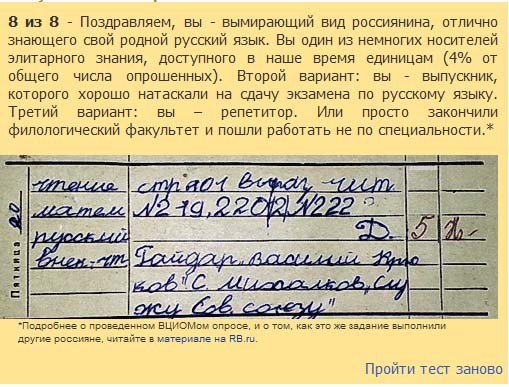 8 из 8 - Поздравляем, вы - вымирающий вид россиянина, отлично
знающего свой родной русский язык. Вы один из немногих носителей
элитарного знания, доступного в наше время единицам (4% от
общего числа опрошенных). Второй вариант: вы - выпускник,
которого хорошо натаскали на сдачу экзамена по русскому языку.
Третий вариант: вы – репетитор. Или просто закончили
филологический факультет и пошли работать не по специальности.*
Пятница 20
чтение стр 101 выраз. чит.
матем №219, 220(2), №222
русский Д. 5
внек.-чт Гайдар „Василий Крю
ков" С. Михалков „Слу
жу Сов. союзу"
*Подробнее о проведенном ВЦИОМом опросе, и о том, как это же задание выполнили
другие россияне, читайте в материале на RB.ru.
Пройти тест заново